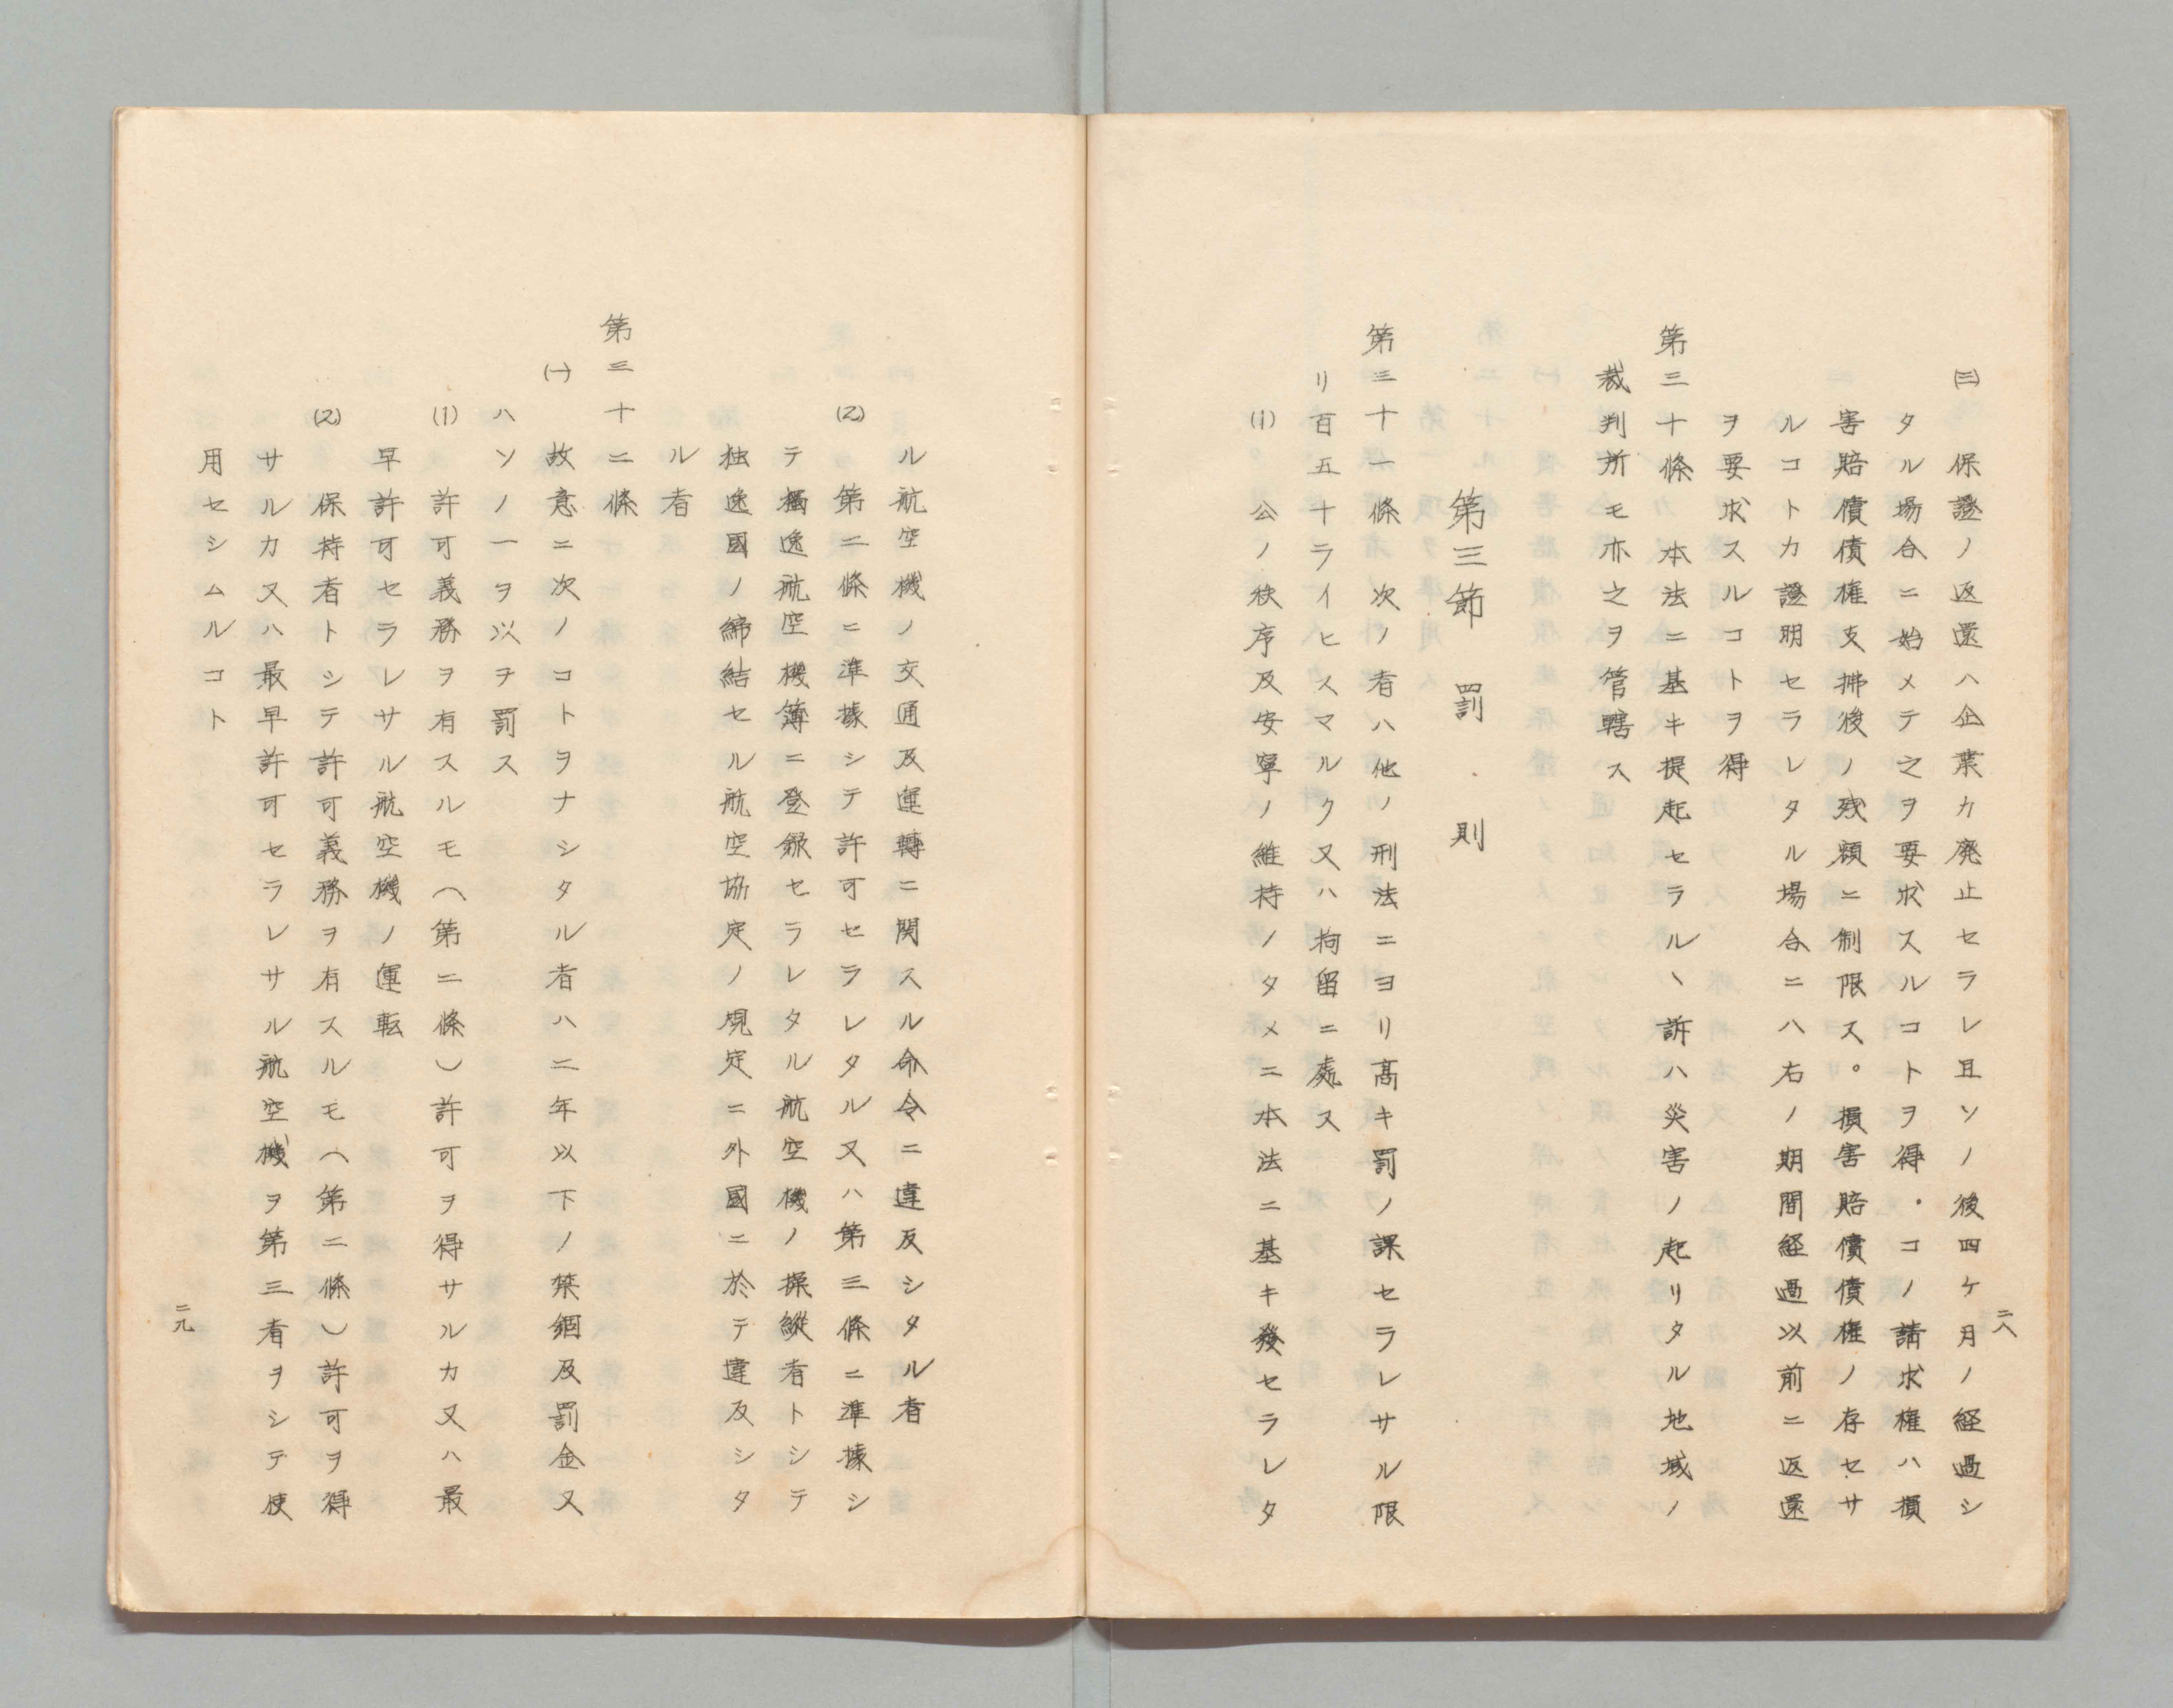 二八
㈢　保證ノ返還ハ企業カ廃止セラレ且ソノ後四ケ月ノ経過シ
タル場合ニ始メテ之ヲ要求スルコトヲ得・コノ請求権ハ損
害賠償債権支拂後ノ残額ニ制限ス。損害賠償債権ノ存セサ
ルコトカ證明セラレタル場合ニハ右ノ期間経過以前ニ返還
ヲ要求スルコトヲ得
第三十條　本法ニ基キ提起セラルヽ訴ハ災害ノ起リタル地域ノ
裁判所モ亦之ヲ管轄ス
第三節　罰　則
第三十一條　次ノ者ハ他ノ刑法ニヨリ高キ罰ノ課セラレサル限
リ百五十ライヒスマルク又ハ拘留ニ處ス
(1)　公ノ秩序及安寧ノ維持ノタメニ本法ニ基キ發セラレタ
ル航空機ノ交通及運轉ニ関スル命令ニ違反シタル者
(2)　第二條ニ準據シテ許可セラレタル又ハ第三條ニ準據シ
テ獨逸航空機簿ニ登録セラレタル航空機ノ操縦者トシテ
独逸國ノ締結セル航空協定ノ規定ニ外國ニ於テ違反シタ
ル者
第三十二條
㈠　故意ニ次ノコトヲナシタル者ハ二年以下ノ禁錮及罰金又
ハソノ一ヲ以テ罰ス
(1)　許可義務ヲ有スルモ（第二條）許可ヲ得サルカ又ハ最
早許可セラレサル航空機ノ運転
(2)　保持者トシテ許可義務ヲ有スルモ（第二條）許可ヲ得
サルカ又ハ最早許可セラレサル航空機ヲ第三者ヲシテ使
用セシムルコト
二九